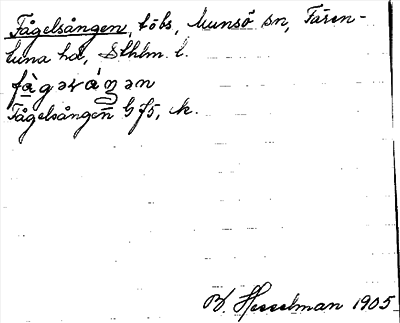 Fågelsången, töbs, Munsö sn, Fären-
tuna hd, Sthlm. l.
Fågelsången G f5, k.
B. Hesselman 1905